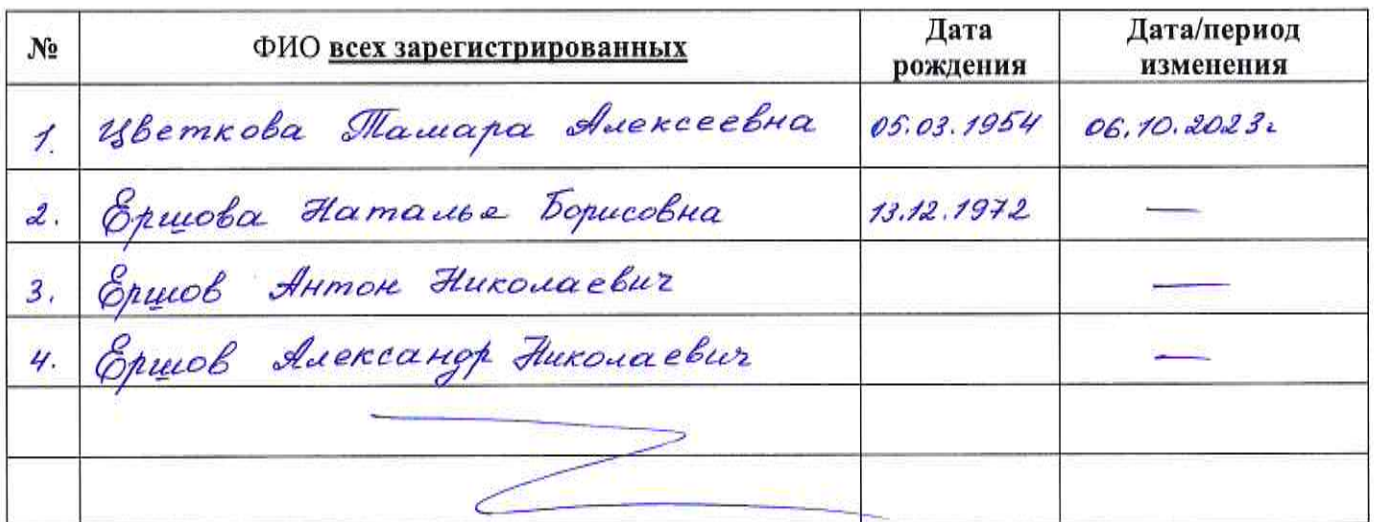 № ФИО всех зарегистрированных Дата рождения Дата/период изменения
1. Цветкова Тамара Алексеевна 05.03.1954 06.10.2023г
2. Ершова Наталья Борисовна 13.12.1972 —
3. Ершов Антон Николаевич —
4. Ершов Александр Николаевич —